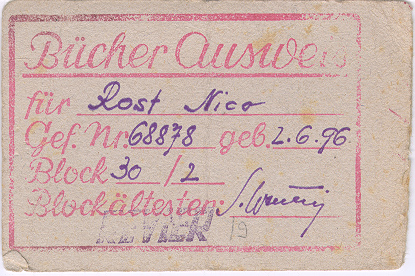 Bücher Ausweis
für Rost Nico
Gef. Nr. 68878 geb. 2.6.96
Block 30 / 2
Blockältester:
REVIER